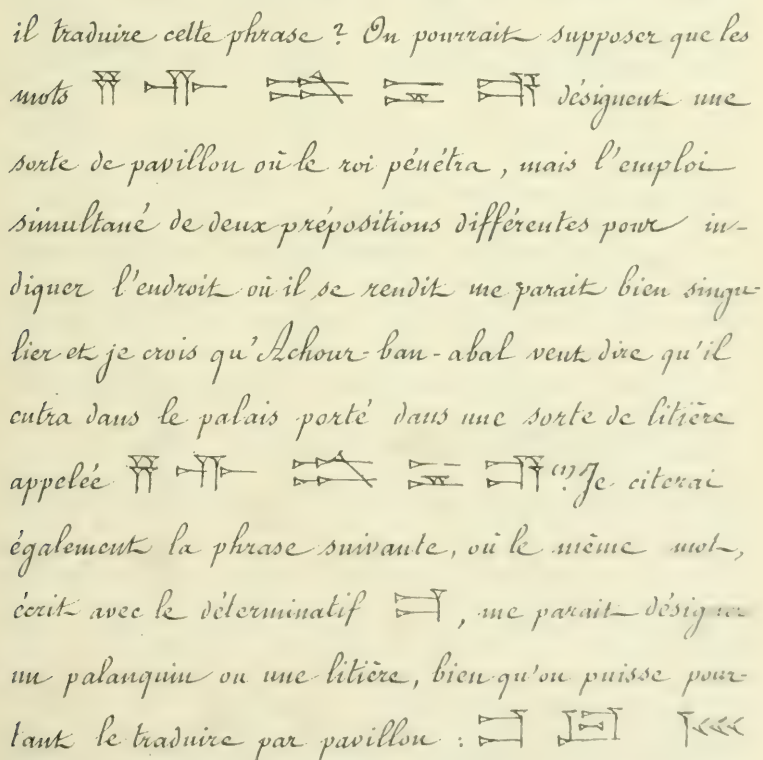 il traduire cette phrase ? On pourrait supposer que les
mots désignent une
sorte de pavillon où le roi pénétra, mais l'emploi
simultané de deux prépositions différentes pour in-
diquer l'endroit où il se rendit me parait bien singu-
lier et je crois qu'Achour-ban-abal veut dire qu'il
entra dans le palais porté dans une sorte de litière
appelée (1). Je citerai
également la phrase suivante, où le même mot,
écrit avec le déterminatif , me parait désigner
un palanquin ou une litière, bien qu'on puisse pour-
tant le traduire par pavillon :